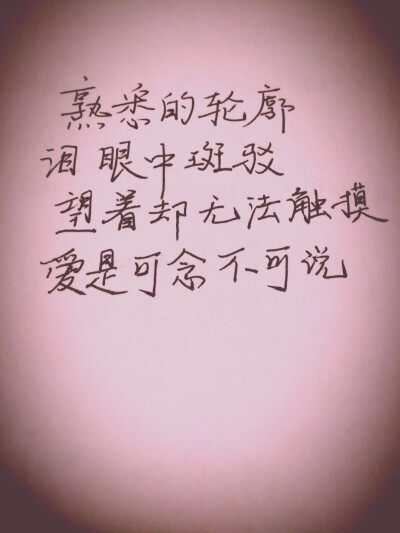 熟悉的轮廓
泪眼中斑驳
望着却无法触摸
爱是可念不可说